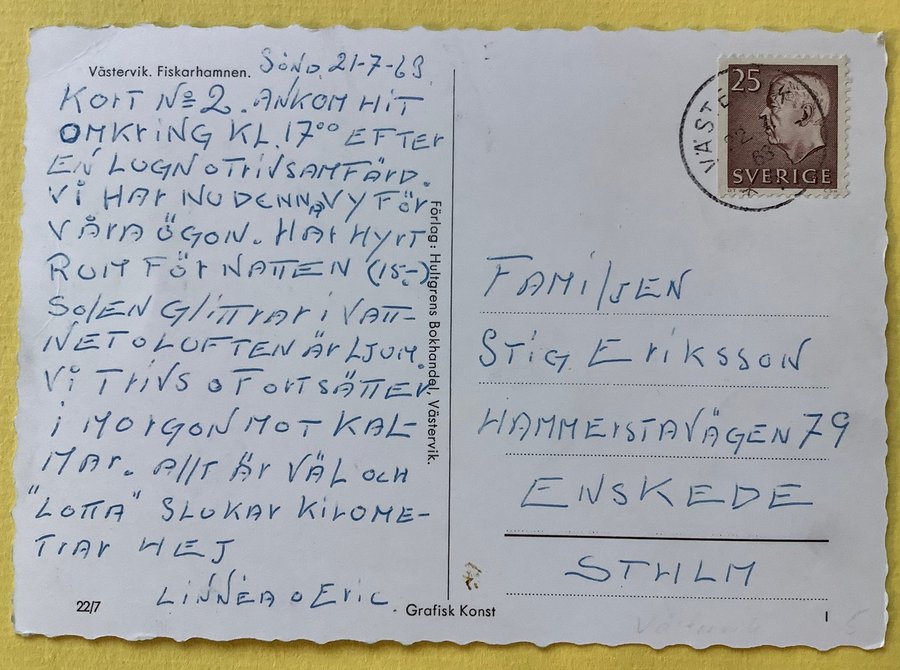 Västervik. Fiskarhamnen.
SÖND. 21-7-63
KORT Nº 2. ANKOM HIT
OMKRING KL. 17⁰⁰ EFTER
EN LUGN O TRIVSAM FÄRD.
VI HAR NU DENNA VY FÖR
VÅRA ÖGON. HAR HYRT
RUM FÖR NATTEN (15:-)
SOLEN GLITTRAR I VATT-
NET O LUFTEN ÄR LJUM
VI TRIVS O FORTSÄTTER
I MORGON MOT KAL-
MAR. ALLT ÄR VÄL OCH
"LOTTA" SLUKAR KILOME-
TRAR HEJ
LINNÉA O ERIC.
22/7
Förlag: Hultgrens Bokhandel, Västervik.
Grafisk Konst
25
SVERIGE
VÄSTERVIK
22. 7. 63
FAMILJEN
STIG ERIKSSON
HAMMERSTAVÄGEN 79
ENSKEDE
STHLM
I